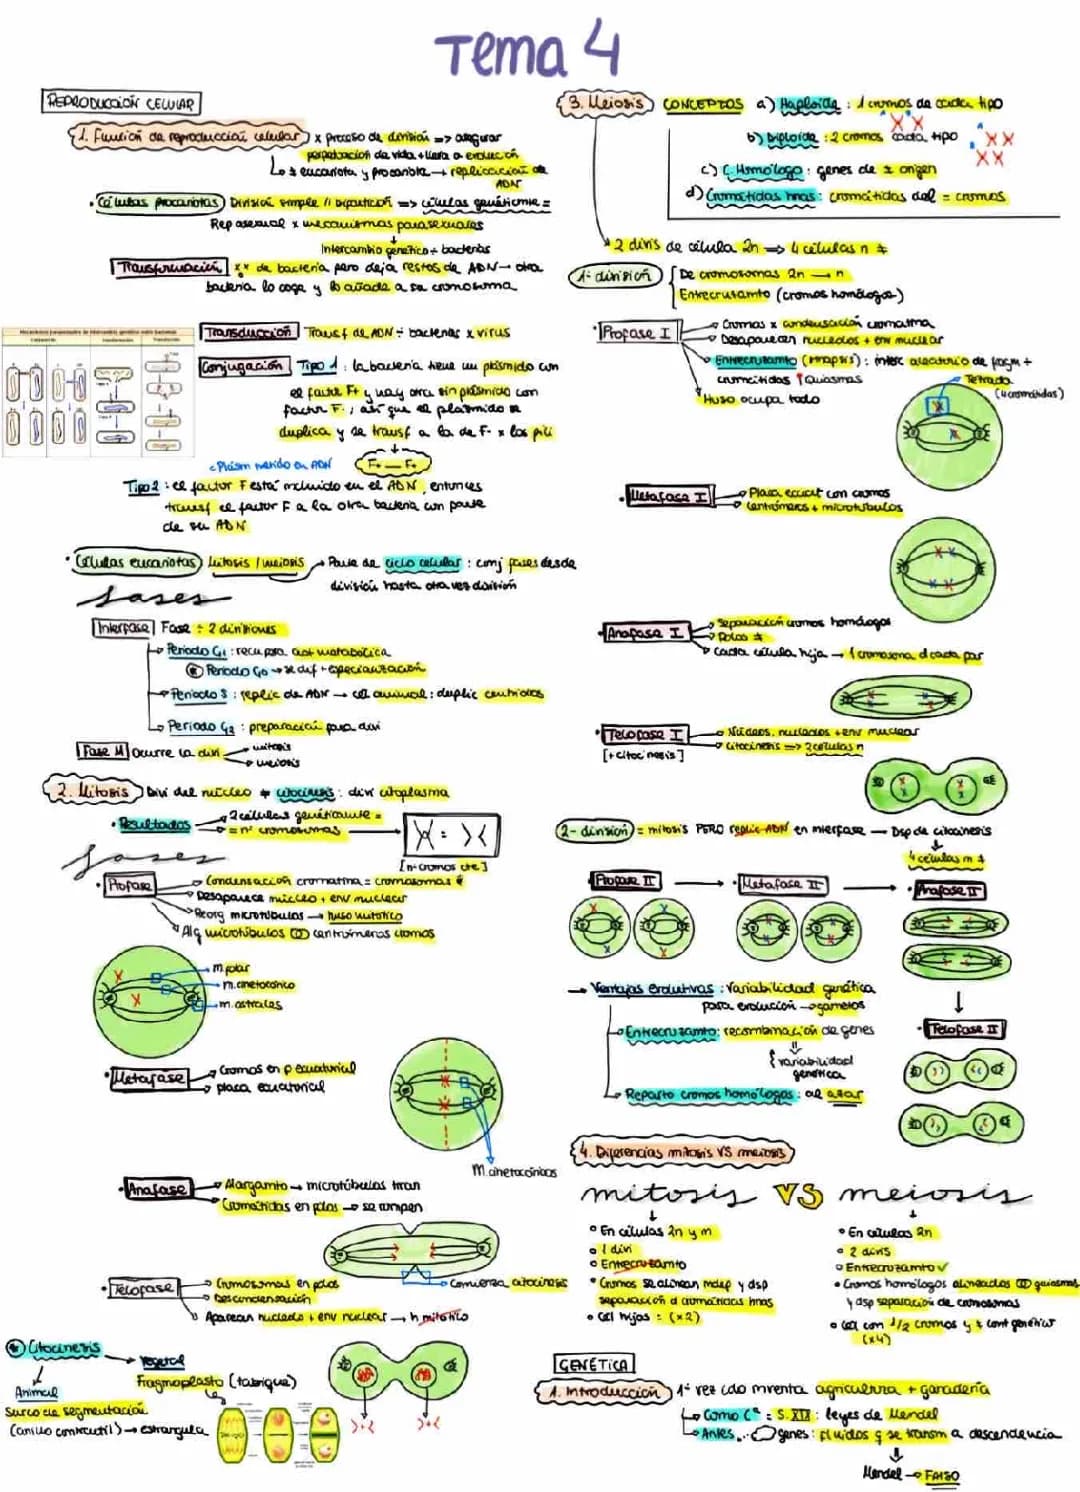 Tema 4
REPRODUCCIÓN CELULAR
1. Función de reproducción celular x proceso de división => asegurar
perpetuación de vida + lleva a evolución
≠ eucariota y procariota → replicación de
ADN
• Células procariotas División simple // bipartición => células genéticamte =
Rep asexual x mecanismos parasexuales
Intercambio genético ÷ bacterias
Transformación xx de bacteria pero deja restos de ADN → otra
bacteria lo coge y lo añade a su cromosoma
Transducción Transf de ADN ÷ bacterias x virus
Conjugación Tipo 1 : la bacteria tiene un plásmido con
el factor F+ y hay otra sin plásmido con
factor F-, así que el plásmido se
duplica y se transf a la de F- x los pili
F+ — F+
Plásm metido en ADN
Tipo 2 : el factor F está incluido en el ADN, entonces
transf el factor F a la otra bacteria con parte
de su ADN
• Células eucariotas Mitosis / meiosis → Parte de ciclo celular : conj fases desde
división hasta otra vez división
fases
Interfase Fase ÷ 2 divisiones
Periodo G1 : recupera act metabólica
Periodo G0 → se dif + especialización
Periodo S : replic de ADN → cél animal : duplic centriolos
Periodo G2 : preparación para divi
Fase M Ocurre la divi
mitosis
meiosis
2. Mitosis Divi del núcleo ≠ citocinesis : divi citoplasma
• Resultados
2 células genéticamte =
= nº cromosomas
[nº cromos cte]
fases
• Profase
Condensación cromatina = cromosomas
Desaparece núcleo + env nuclear
Reorg microtúbulos → huso mitótico
Alg microtúbulos centrómeros cromos
m. polar
m. cinetocórico
m. astrales
• Metafase
Cromos en p ecuatorial
placa ecuatorial
M. cinetocóricos
• Anafase
Alargamto → microtúbulos tiran
Cromátidas en polos → se rompen
Comienza citocinesis
• Telofase
Cromosomas en polos
Descondensación
Aparecen nucleolo + env nuclear → h mitótico
Citocinesis
Vegetal
Fragmoplasto (tabique)
Animal
Surco de segmentación
(anillo contráctil) → estrangula
3. Meiosis CONCEPTOS a) Haploide : 1 cromos de cada tipo
b) Diploide : 2 cromos cada tipo
c) C. Homólogo : genes de ≠ origen
d) Cromátidas hnas : cromátidas del = cromos
2 divis de célula 2n => 4 células n ≠
1ª división
De cromosomas 2n → n
Entrecruzamto (cromos homólogos)
• Profase I
Cromos x condensación cromatina
Desaparecen nucleolos + env nuclear
Entrecruzamto (sinapsis) : interc aleatorio de fragm +
cromátidas quiasmas
Huso ocupa todo
Tetrada
(4 cromátidas)
• Metafase I
Placa ecuat con cromos
Centrómeros + microtúbulos
• Anafase I
Separación cromos homólogos
Polos ≠
Cada célula hija → 1 cromosoma d cada par
• Telofase I
[+ citocinesis]
Núcleos, nucleolos + env nuclear
Citocinesis => 2 células n
2ª división = mitosis PERO replic ADN en interfase — Dsp de citocinesis
4 células n ≠
• Profase II
• Metafase II
• Anafase II
• Telofase II
→ Ventajas evolutivas : Variabilidad genética
para evolución → gametos
Entrecruzamto : recombinación de genes
variabilidad
genética
Reparto cromos homólogos : al azar
4. Diferencias mitosis VS meiosis
mitosis VS meiosis
• En células 2n y n
• 1 divi
• Entrecruzamto
• Cromos se alinean indep y dsp
separación d cromátidas hnas
• Cél hijas = (x2)
• En células 2n
• 2 divis
• Entrecruzamto ✓
• Cromos homólogos alineados quiasmas
y dsp separación de cromosomas
• Cél con 1/2 cromos y ≠ cont genético
(x4)
GENÉTICA
1. Introducción 1ª vez cdo inventa agricultura + ganadería
Como Cª = S. XIX : leyes de Mendel
Antes... genes : fluidos q se transm a descendencia
Mendel → FALSO